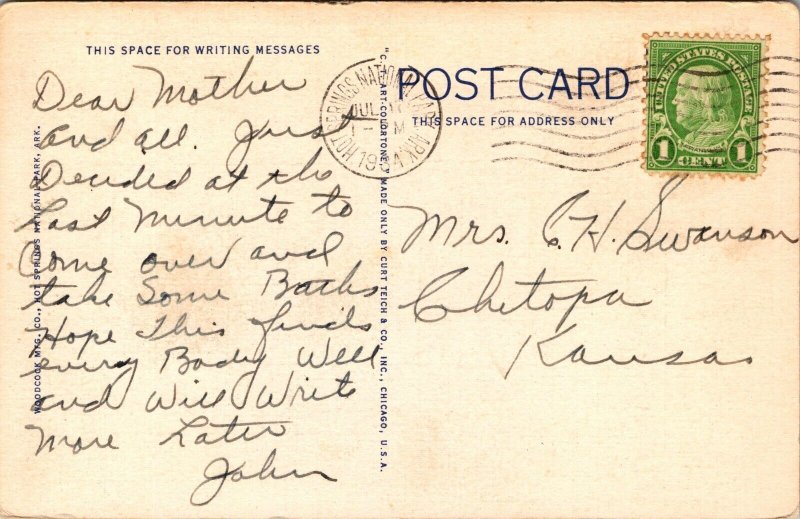 THIS SPACE FOR WRITING MESSAGES
Dear Mother
and all. Just
Decided at the
last Minute to
Come over and
take Some Baths
Hope This finds
every Body Well
and Will Write
More Later
John
WOODCOCK MFG. CO., HOT SPRINGS NATIONAL PARK, ARK.
MADE ONLY BY CURT TEICH & CO., INC., CHICAGO, U.S.A.
POST CARD
THIS SPACE FOR ADDRESS ONLY
HOT SPRINGS NATIONAL PARK, ARK.
JUL
UNITED STATES POSTAGE
FRANKLIN
1 CENT 1
Mrs. C. H. Swanson
Chetopa
Kansas